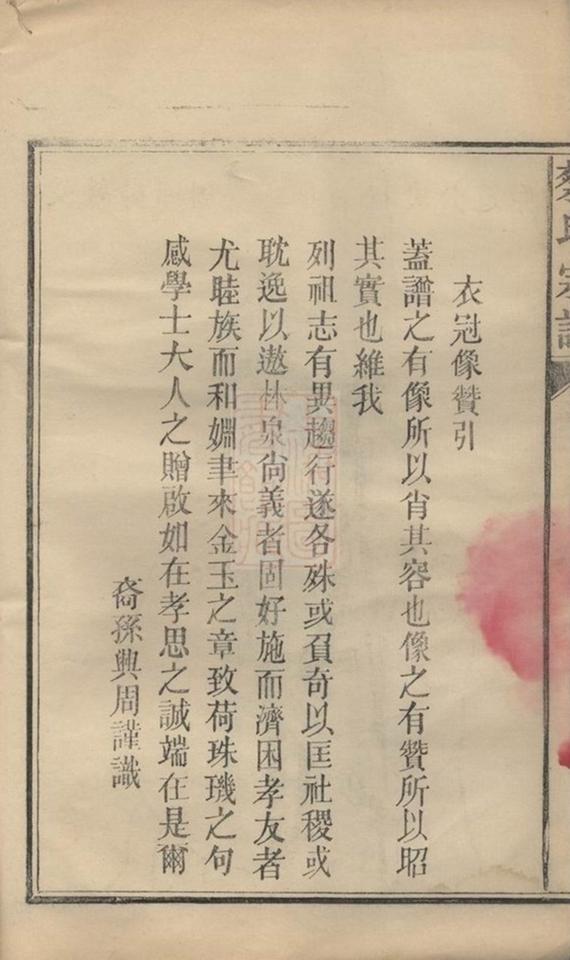 衣冠像贊引
蓋譜之有像所以肖其容也像之有贊所以昭
其實也維我
列祖志有異趨行遂各殊或負奇以匡社稷或
耽逸以遨林泉尚義者固好施而濟困孝友者
尤睦族而和婣聿來金玉之章致荷珠璣之句
感學士大人之贈啟如在孝思之誠端在是爾
裔孫興周謹識